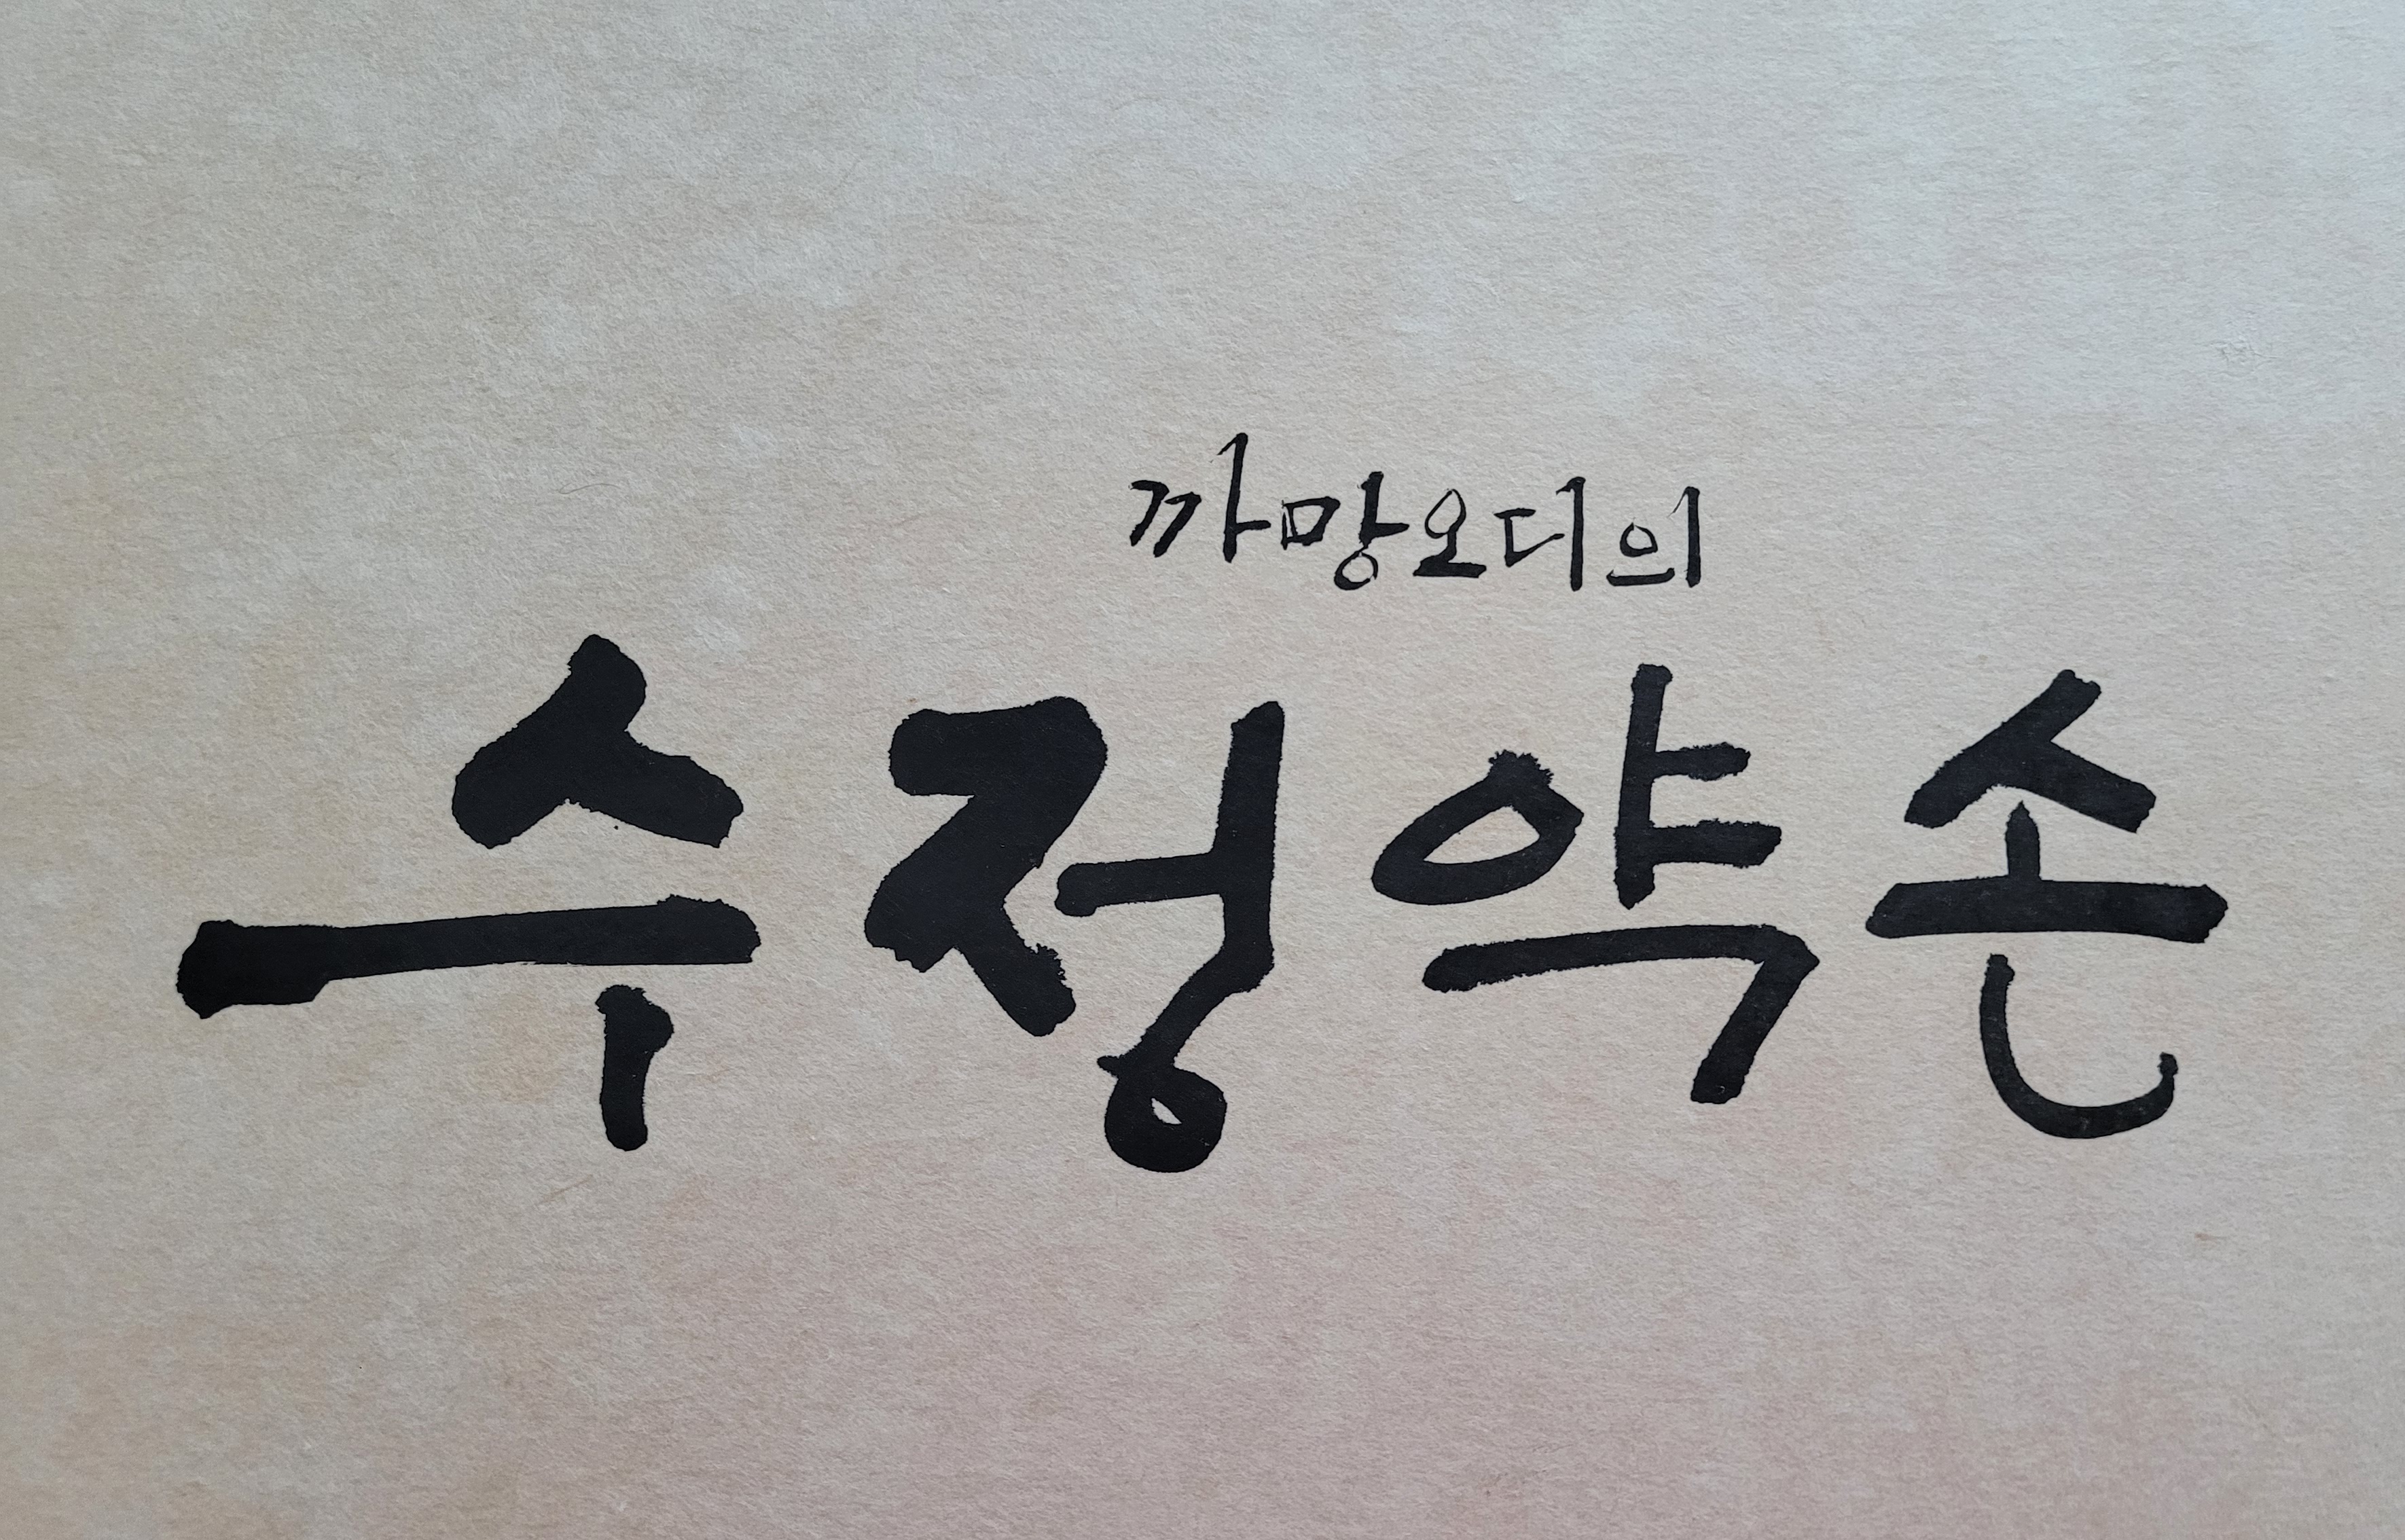 까망오디의
수정약손